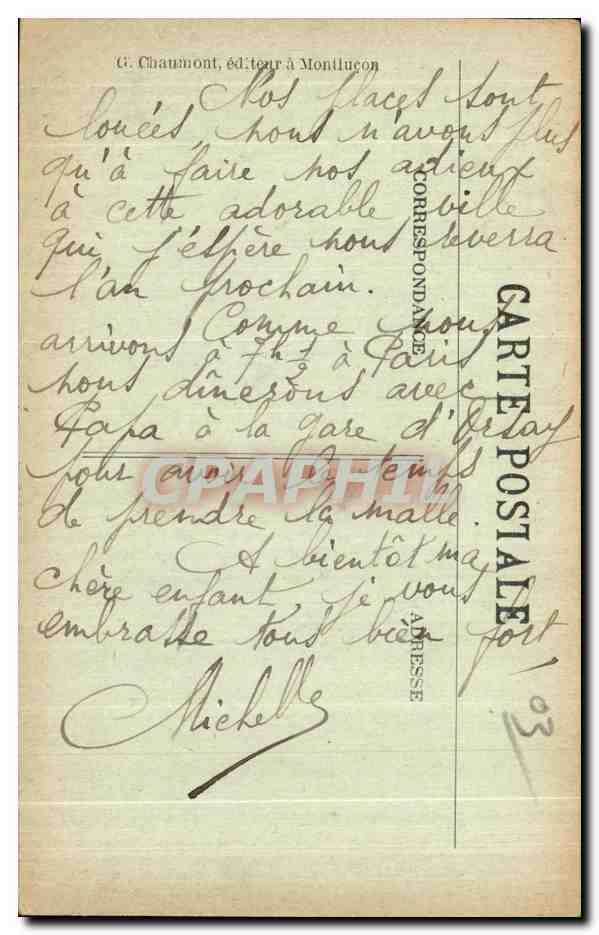 G. Chaumont, éditeur à Montluçon
Nos places sont
louées, nous n'avons plus
qu'à faire nos adieux
à cette adorable ville
qui j'espère nous reverra
l'an prochain.
Comme nous
arrivons à 7h ½ à Paris
nous dînerons avec
Papa à la gare d'Orsay
pour avoir le temps
de prendre la malle.
A bientôt ma
chère enfant, je vous
embrasse tous bien fort,
Michelle
CORRESPONDANCE
ADRESSE
CARTE POSTALE
03
CPAPHIL